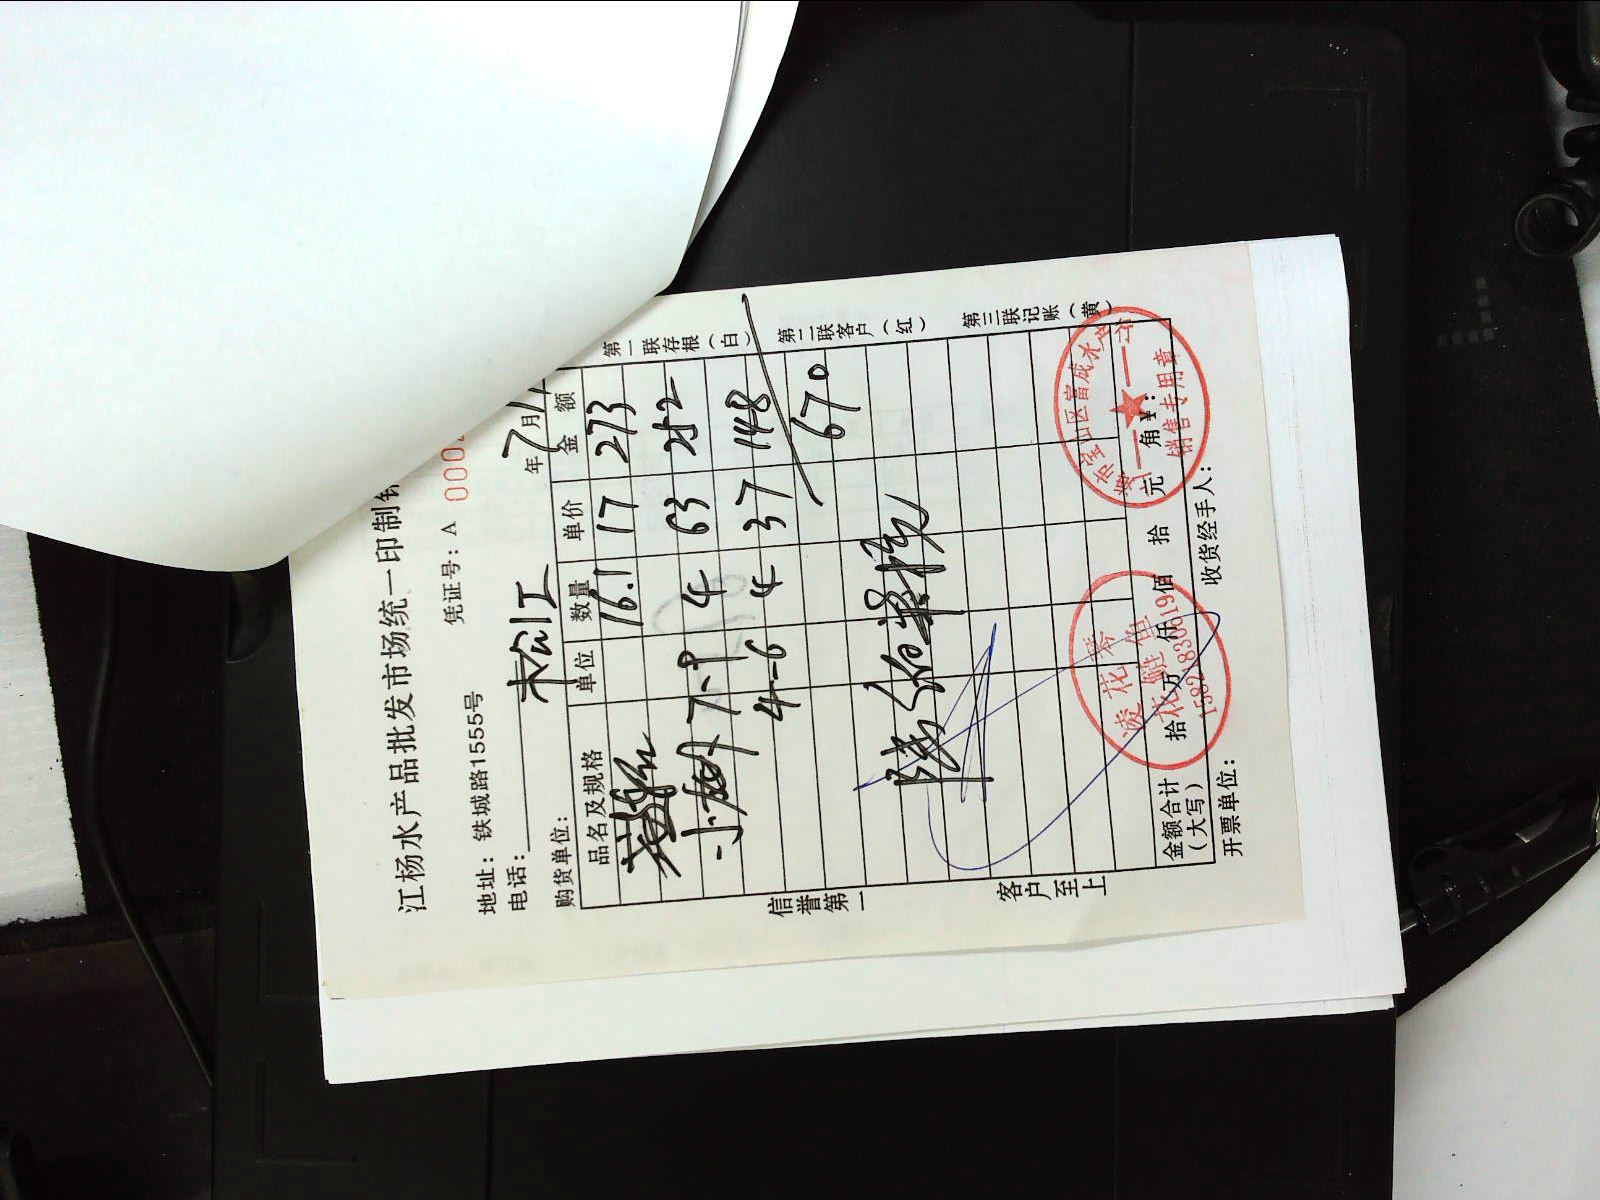 江杨水产品批发市场统一印制
地址：铁城路1555号 凭证号：A 000
电话：
购货单位： 松江 年7月1
品名及规格 单位 数量 单价 金额
16.1 17 273
小 7-9 4 63 252
4-6 4 37 148
670
信誉第一
客户至上
第一联存根（白）
第二联客户（红）
第三联记账（黄）
金额合计（大写） 拾 万 仟 佰 拾 元 角 ¥：
开票单位： 收货经手人：
凌花琴
花鲢鱼
15821830619
市宝山区富成水
销售专用章